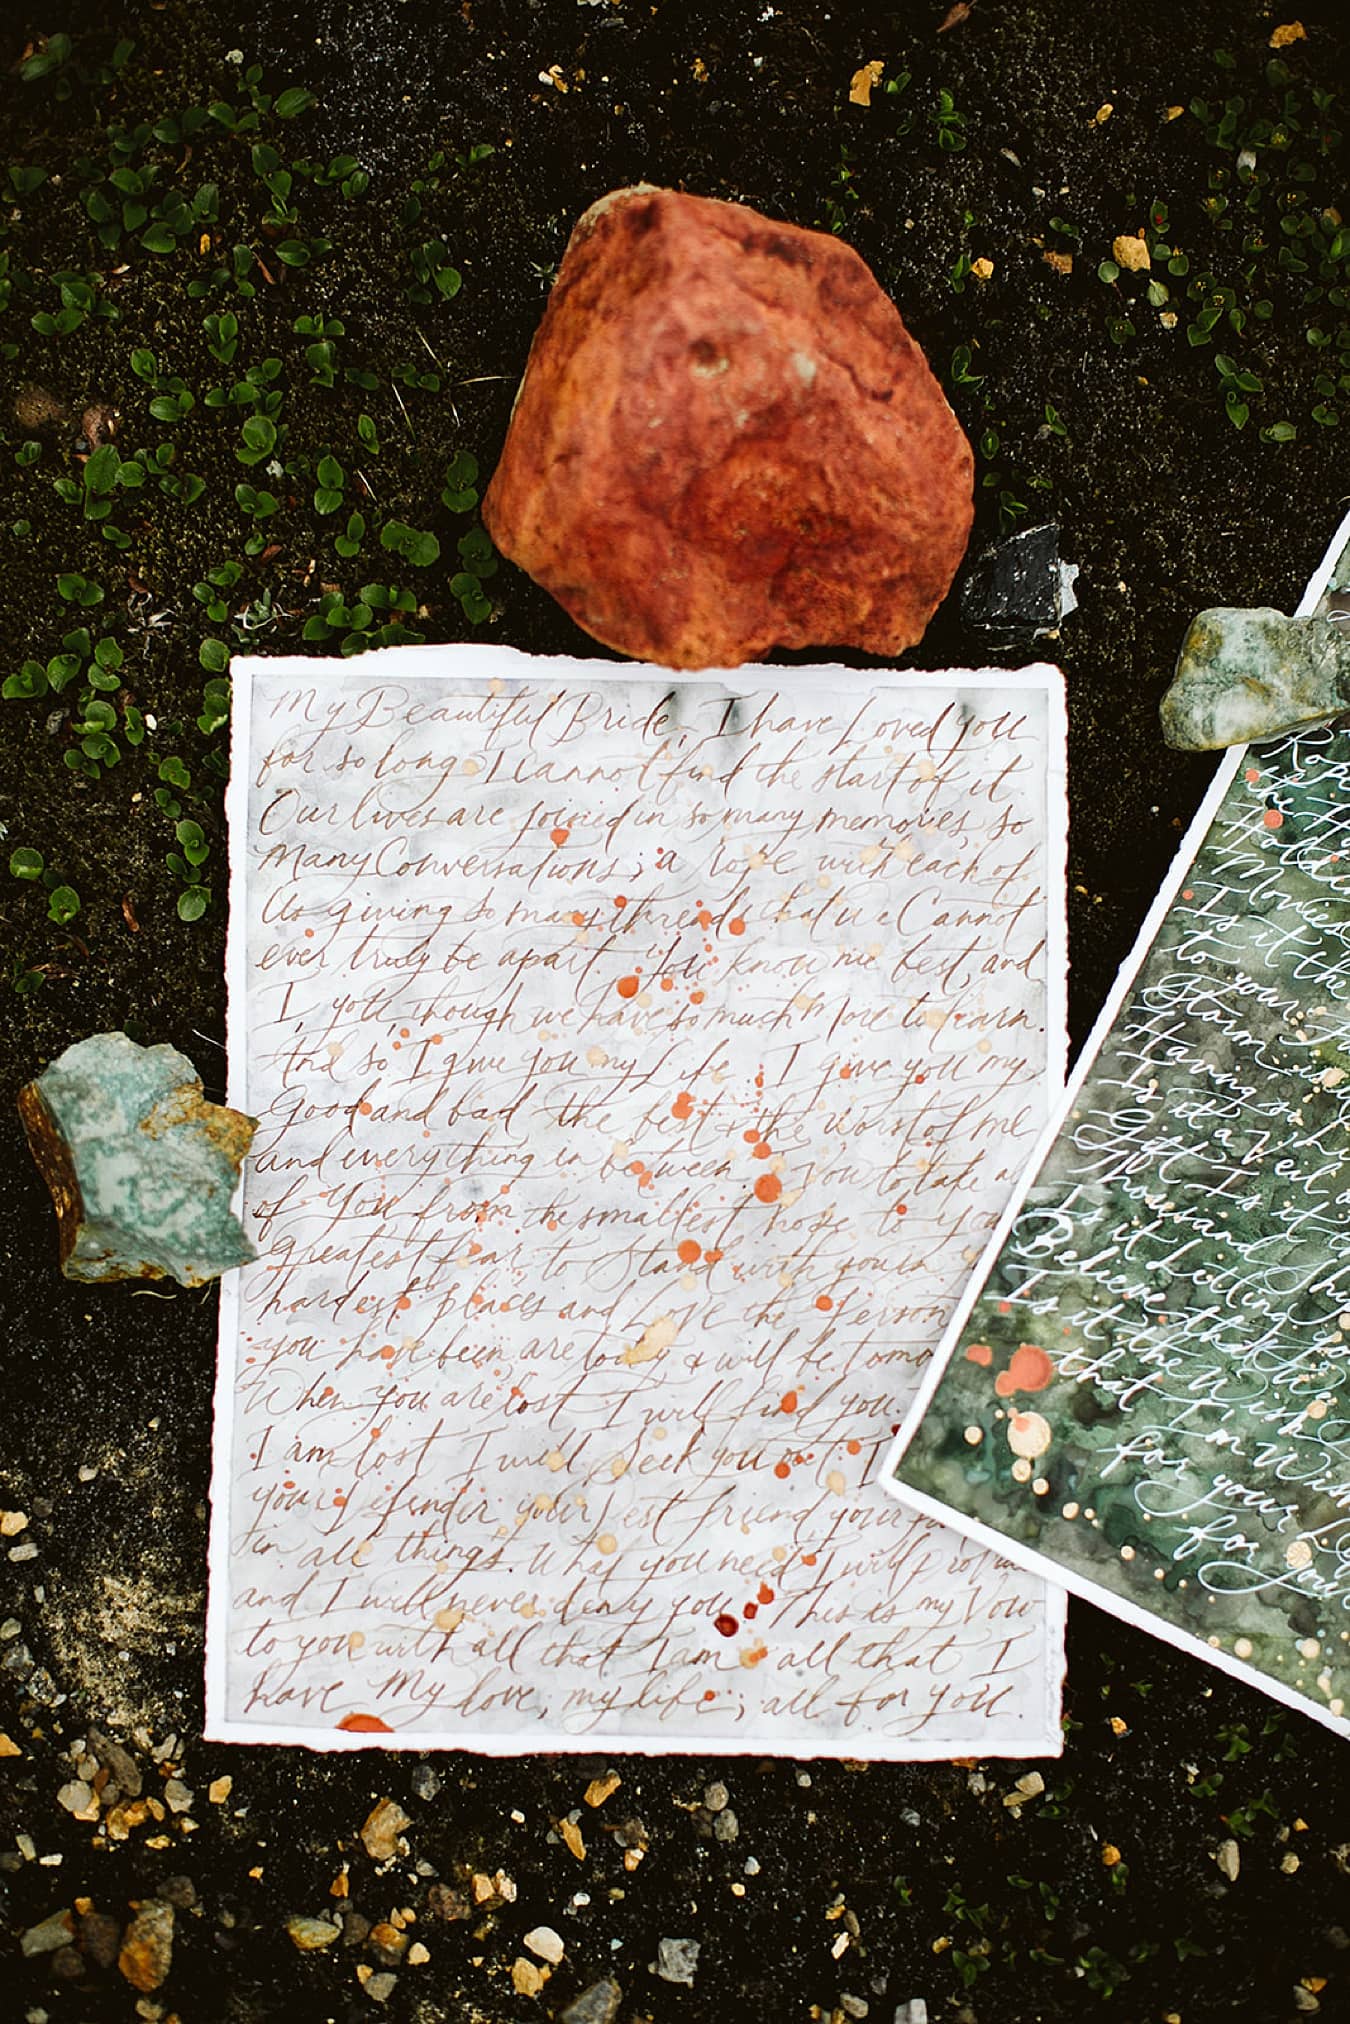 My Beautiful Bride, I have Loved you
for so long I cannot find the start of it.
Our lives are joined in so many memories so
Many Conversations; a rope with each of
Us giving so many threads that we Cannot
ever truly be apart. You know me best, and
I, you, though we have so much More to learn.
And so, I give you my Life. I give you my
Good and bad the best & the worst of me
and everything in between. I Vow to take al
of You from the smallest hope to you
greatest fear to Stand with you in
hardest places and Love the Person
you have been are today & will be tomo
When you are lost I will find you.
I am lost I will Seek you out I
your Defender your best friend your
in all things. What you need I will
and I will never deny you. This is my Vow
to you with all that I am & all that I
have My love, my life; all for you.
Rop
the
Holdin
Movies
Is it the
to your
Storm is
Having
Is it a Veil
Gift Is it
Thousand
Is it Letting yo
Believe that we
Is it the Wish
that I'm Wish
for your
for you